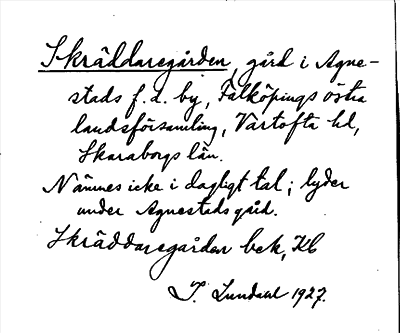 Skräddaregården, gård i Agne-
stads f.d. by, Falköpings östra
landsförsamling, Vartofta hd,
Skaraborgs län.
Nämnes icke i dagligt tal; lyder
under Agnestads gård.
Skräddaregården bek, Kb
Lundahl 1927.